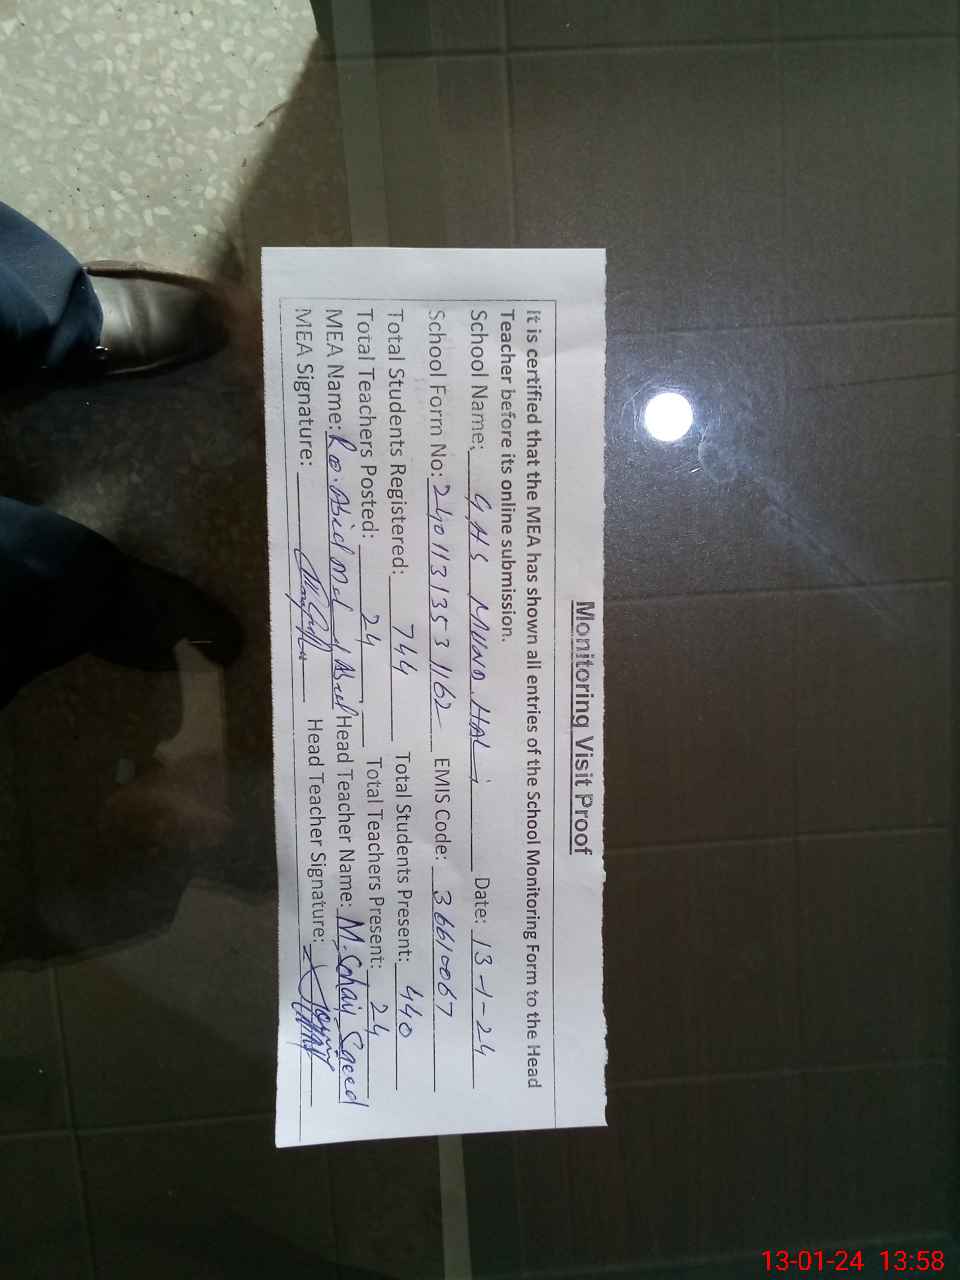 Monitoring Visit Proof
It is certified that the MEA has shown all entries of the School Monitoring Form to the Head
Teacher before its online submission.
School Name: GHS MUND. HAL Date: 13-1-24
School Form No: 24011313531162 EMIS Code: 36610067
Total Students Registered: 744 Total Students Present: 440
Total Teachers Posted: 24 Total Teachers Present: 24
MEA Name: Abid Head Teacher Name: M. Sohail Saeed
MEA Signature: Head Teacher Signature:
13-01-24 13:58